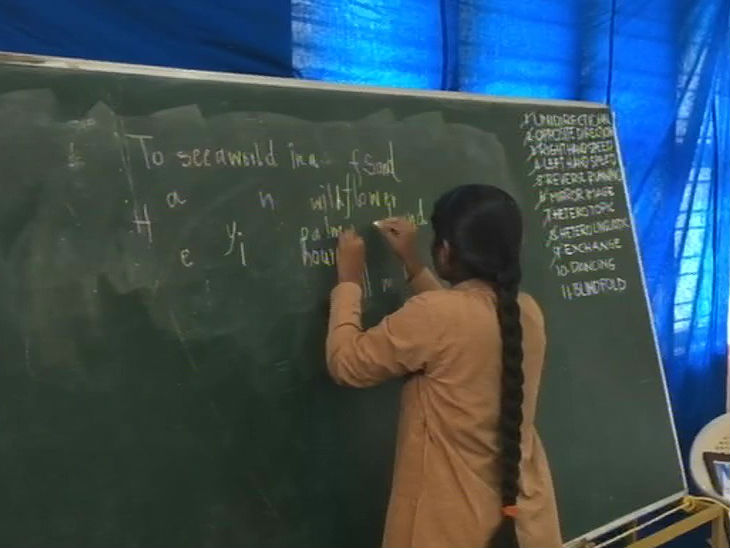 To see a world in a f Sand
a n wildflower
H palm nd
e yi hour
1 UNIDIRECTIONAL
2 OPPOSITE DIRECTION
3 RIGHT HAND SPEED
4 LEFT HAND SPEED
5 REVERSE RUNNING
6 MIRROR IMAGE
7 HETEROTOPIC
8 HETEROLINGUISTIC
9 EXCHANGE
10 DANCING
11 BLINDFOLD